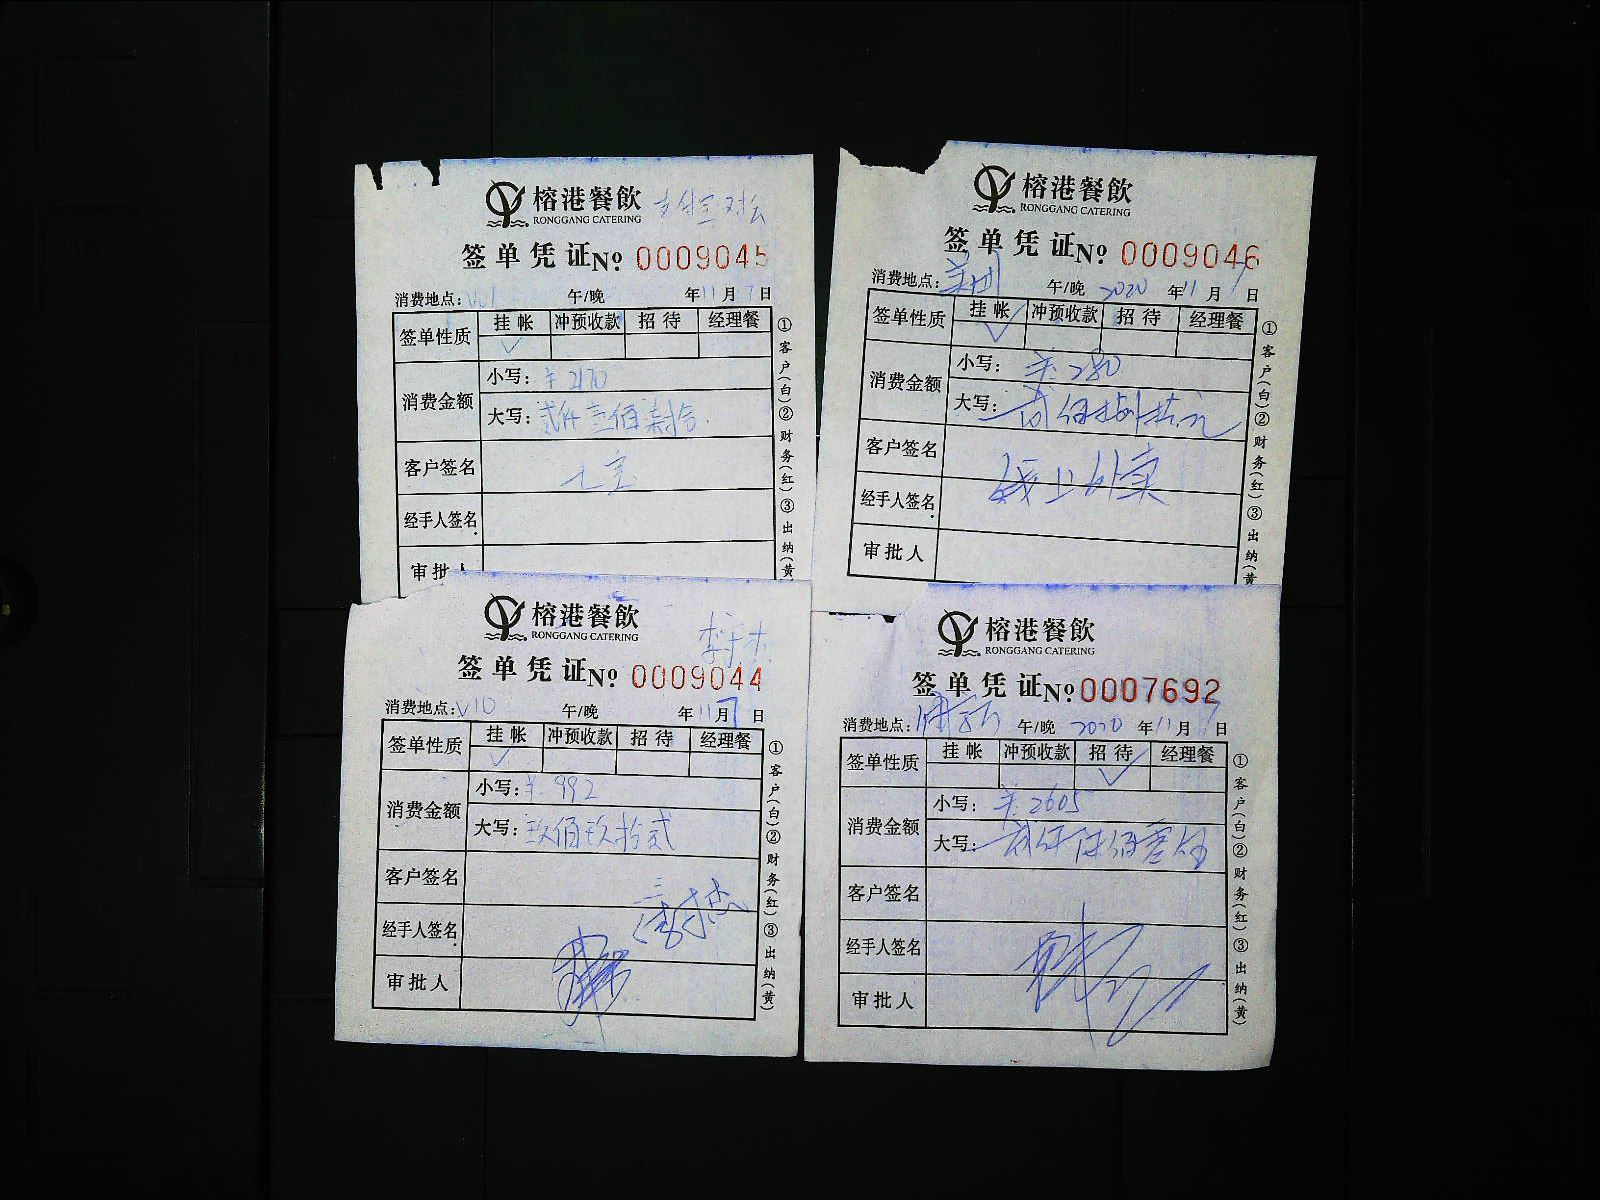 榕港餐飲
RONGGANG CATERING
支付宝对公
签单凭证No 0009045
消费地点：V01 午/晚 年11月7日
签单性质 挂帐 冲预收款 招待 经理餐
✓
消费金额 小写：¥2170
大写：贰仟壹佰柒拾
客户签名 七宝
经手人签名
审批人
①客户(白)②财务(红)③出纳(黄
榕港餐飲
RONGGANG CATERING
签单凭证No 0009046
消费地点： 午/晚 2020年11月7日
签单性质 挂帐 冲预收款 招待 经理餐
✓
消费金额 小写：¥280
大写：贰佰捌拾元
客户签名 线上外卖
经手人签名
审批人
①客户(白)②财务(红)③出纳(黄
榕港餐飲
RONGGANG CATERING
签单凭证No 0009044
消费地点：V10 午/晚 年11月7日
签单性质 挂帐 冲预收款 招待 经理餐
✓
消费金额 小写：¥992
大写：玖佰玖拾贰
客户签名
经手人签名
审批人
①客户(白)②财务(红)③出纳(黄)
榕港餐飲
RONGGANG CATERING
签单凭证No 0007692
消费地点： 午/晚 2020年11月7日
签单性质 挂帐 冲预收款 招待 经理餐
✓
消费金额 小写：¥2605
大写：贰仟陆佰零伍
客户签名
经手人签名
审批人
①客户(白)②财务(红)③出纳(黄)